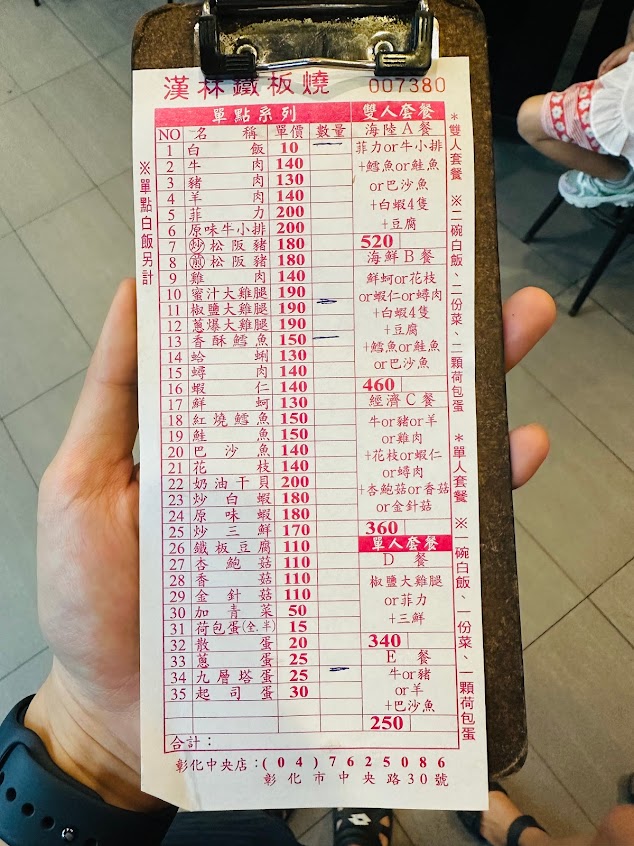 漢林鐵板燒 007380
單點系列
NO 名稱 單價 數量
1 白飯 10
2 牛肉 140
3 豬肉 130
4 羊肉 140
5 菲力 200
6 原味牛小排 200
7 炒松阪豬 180
8 煎松阪豬 180
9 雞肉 140
10 蜜汁大雞腿 190
11 椒鹽大雞腿 190
12 蔥爆大雞腿 190
13 香酥鱈魚 150
14 蛤蜊 130
15 蟳肉 140
16 蝦仁 140
17 鮮蚵 130
18 紅燒鱈魚 150
19 鮭魚 150
20 巴沙魚 140
21 花枝 140
22 奶油干貝 200
23 炒白蝦 180
24 原味蝦 180
25 炒三鮮 170
26 鐵板豆腐 110
27 杏鮑菇 110
28 香菇 110
29 金針菇 110
30 加青菜 50
31 荷包蛋(全.半) 15
32 散蛋 20
33 蔥蛋 25
34 九層塔蛋 25
35 起司蛋 30
合計：
※單點白飯另計
雙人套餐
海陸A餐
菲力or牛小排
+鱈魚or鮭魚
or巴沙魚
+白蝦4隻
+豆腐
520
海鮮B餐
鮮蚵or花枝
or蝦仁or蟳肉
+白蝦4隻
+豆腐
+鱈魚or鮭魚
or巴沙魚
460
經濟C餐
牛or豬or羊
or雞肉
+花枝or蝦仁
or蟳肉
+杏鮑菇or香菇
or金針菇
360
單人套餐
D餐
椒鹽大雞腿
or菲力
+三鮮
340
E餐
牛or豬
or羊
+巴沙魚
250
*雙人套餐 ※二碗白飯、二份菜、二顆荷包蛋
*單人套餐 ※一碗白飯、一份菜、一顆荷包蛋
彰化中央店：(04)7625086
彰化市中央路30號